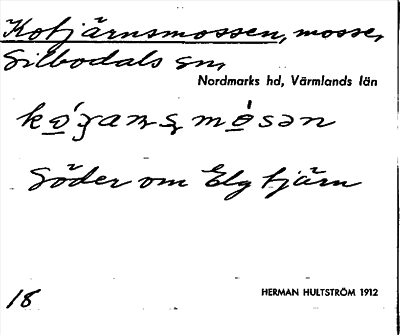 Kotjärnsmossen, mosse,
Silbodals sn,
Nordmarks hd, Värmlands län
Söder om Elgtjärn
18
HERMAN HULTSTRÖM 1912